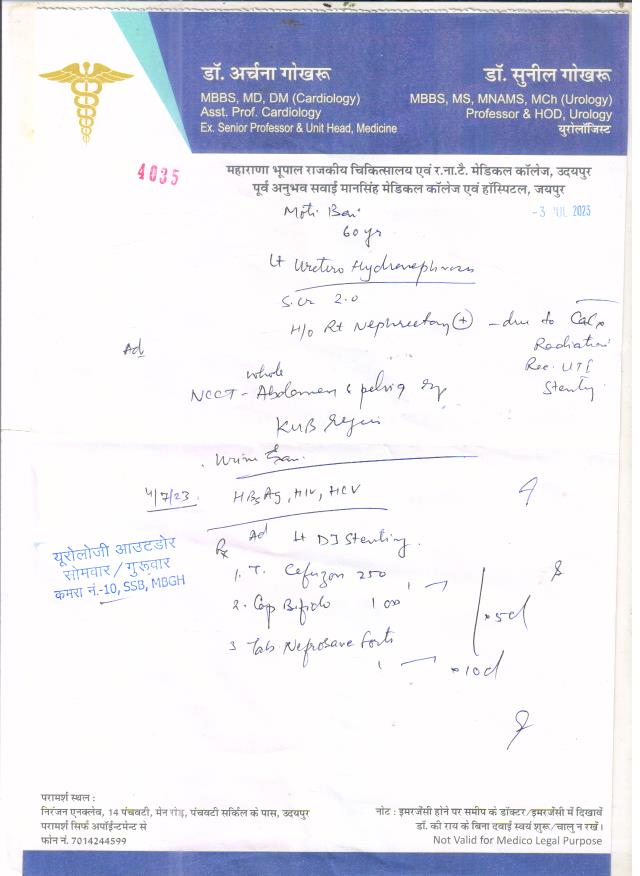 डॉ. अर्चना गोखरू
MBBS, MD, DM (Cardiology)
Asst. Prof. Cardiology
Ex. Senior Professor & Unit Head, Medicine
डॉ. सुनील गोखरू
MBBS, MS, MNAMS, MCh (Urology)
Professor & HOD, Urology
यूरोलॉजिस्ट
4035
महाराणा भूपाल राजकीय चिकित्सालय एवं र.ना.टै. मेडिकल कॉलेज, उदयपुर
पूर्व अनुभव सवाई मानसिंह मेडिकल कॉलेज एवं हॉस्पिटल, जयपुर
-3 JUL 2023
Moti Bai
60 yr
Lt Uretero Hydronephrosis
S.cr 2.0
H/o Rt Nephrectomy (+) - due to Ca Cx
Radiation
Rec. UTI
Stenting
Ad
whole
NCCT - Abdomen & pelvis
KUB region
Urine Exam.
4/7/23. HBsAg, HIV, HCV
Ad Lt DJ Stenting.
Rx
1. T. Cefuzon 250
1
2. Cap Bifido 100
x 5d
3 Tab Neprosave Forte
1 x 10d
यूरोलोजी आउटडोर
सोमवार / गुरूवार
कमरा नं.-10, SSB, MBGH
परामर्श स्थल :
निरंजन एनक्लेव, 14 पंचवटी, मेन रोड़, पंचवटी सर्किल के पास, उदयपुर
परामर्श सिर्फ अपॉईन्टमेन्ट से
फोन नं. 7014244599
नोट : इमरजेंसी होने पर समीप के डॉक्टर/इमरजेंसी में दिखावें
डॉ. की राय के बिना दवाई स्वयं शुरू/चालु न रखें।
Not Valid for Medico Legal Purpose